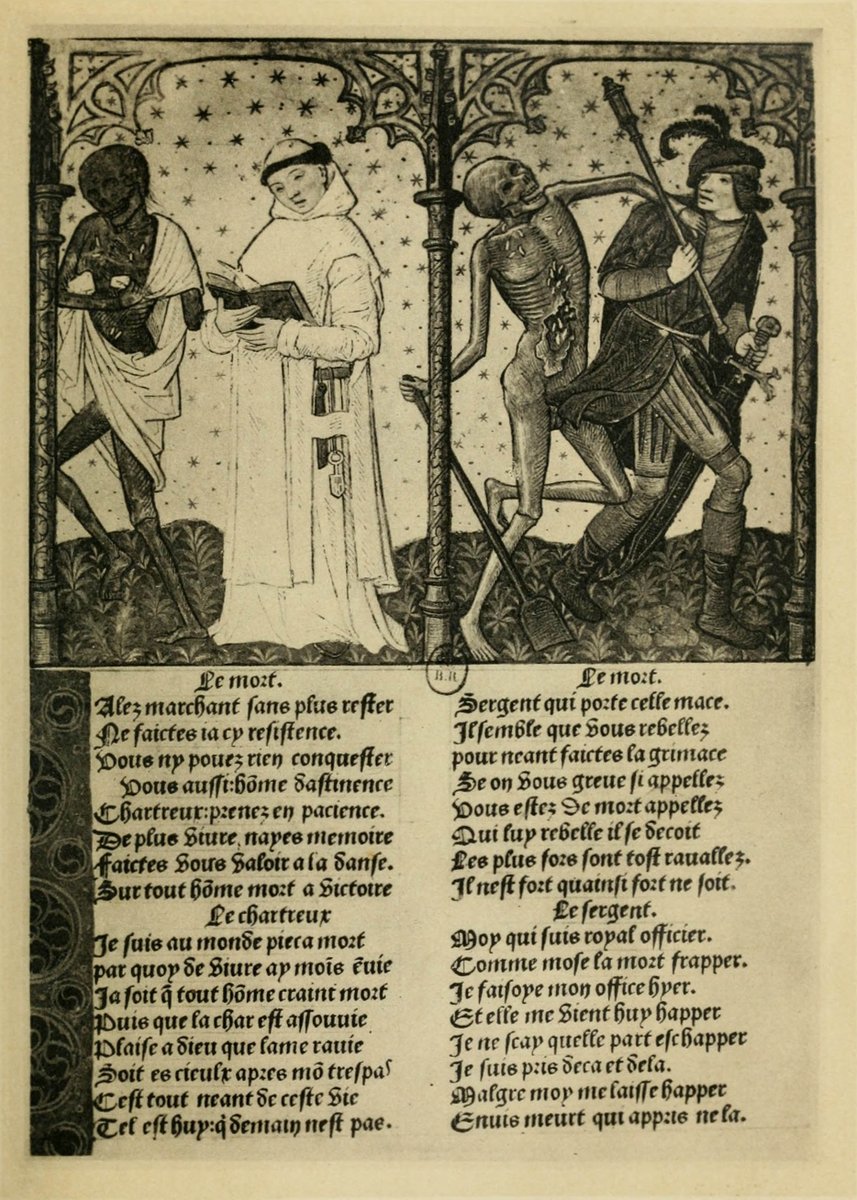 Le mort.
Alez marchant sans plus rester
Ne faictes ia cy resistence.
Vous ny pouez rien conquester
Vous aussi:hõme dastinence
Chartreux:prenez en pacience.
De plus viure, nayes memoire
Faictes vous valoir a la danse.
Sur tout hõme mort a victoire
Le chartreux
Je suis au monde pieca mort
par quoy de viure ay moĩs ẽuie
Ja soit q̃ tout hõme craint mort
Puis que la char est assouuie
Plaise a dieu que lame rauie
Soit es cieulx apres mõ trespas
Cest tout neant de ceste vie
Tel est huy:q̃ demain nest pas.
B.R
Le mort.
Sergent qui porte celle mace.
Il semble que vous rebellez
pour neant faictes la grimace
Se on vous greue si appellez
Vous estez de mort appellez
Qui luy rebelle il se decoit
Les plus fors sont tost rauallez.
Il nest fort quainsi fort ne soit.
Le sergent.
Moy qui suis royal officier.
Comme mose la mort frapper.
Je faisoye mon office hyer.
Et elle me vient huy happer
Je ne scay quelle part eschapper
Je suis pris deca et dela.
Malgre moy me laisse happer
Enuis meurt qui appris ne la.